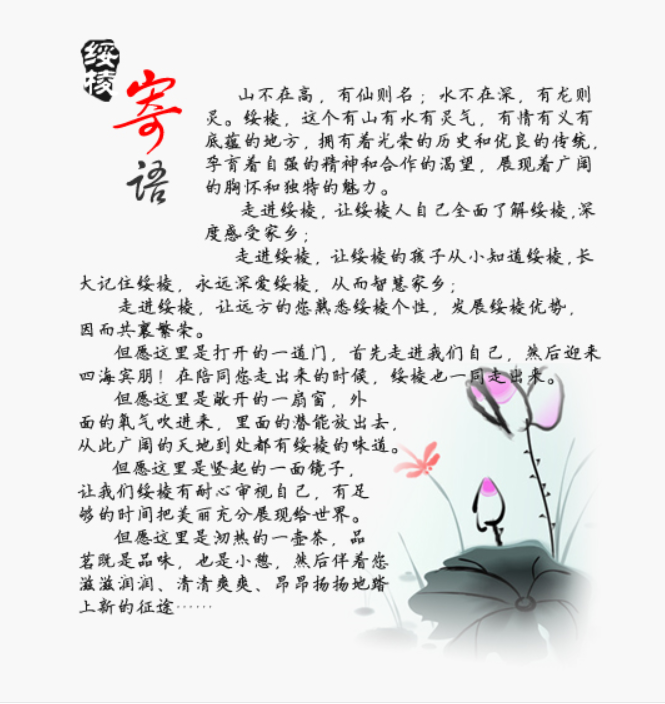 绥棱
寄语
山不在高，有仙则名；水不在深，有龙则
灵。绥棱，这个有山有水有灵气，有情有义有
底蕴的地方，拥有着光荣的历史和优良的传统，
孕育着自强的精神和合作的渴望，展现着广阔
的胸怀和独特的魅力。
走进绥棱，让绥棱人自己全面了解绥棱，深
度感受家乡；
走进绥棱，让绥棱的孩子从小知道绥棱，长
大记住绥棱，永远深爱绥棱，从而智慧家乡；
走进绥棱，让远方的您熟悉绥棱个性，发展绥棱优势，
因而共襄繁荣。
但愿这里是打开的一道门，首先走进我们自己，然后迎来
四海宾朋！在陪同您走出来的时候，绥棱也一同走出来。
但愿这里是敞开的一扇窗，外
面的氧气吹进来，里面的潜能放出去，
从此广阔的天地到处都有绥棱的味道。
但愿这里是竖起的一面镜子，
让我们绥棱有耐心审视自己，有足
够的时间把美丽充分展现给世界。
但愿这里是沏热的一壶茶，品
茗既是品味，也是小憩，然后伴着您
滋滋润润、清清爽爽、昂昂扬扬地踏
上新的征途……